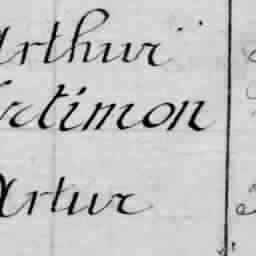 Arthur
Artimon
Artur